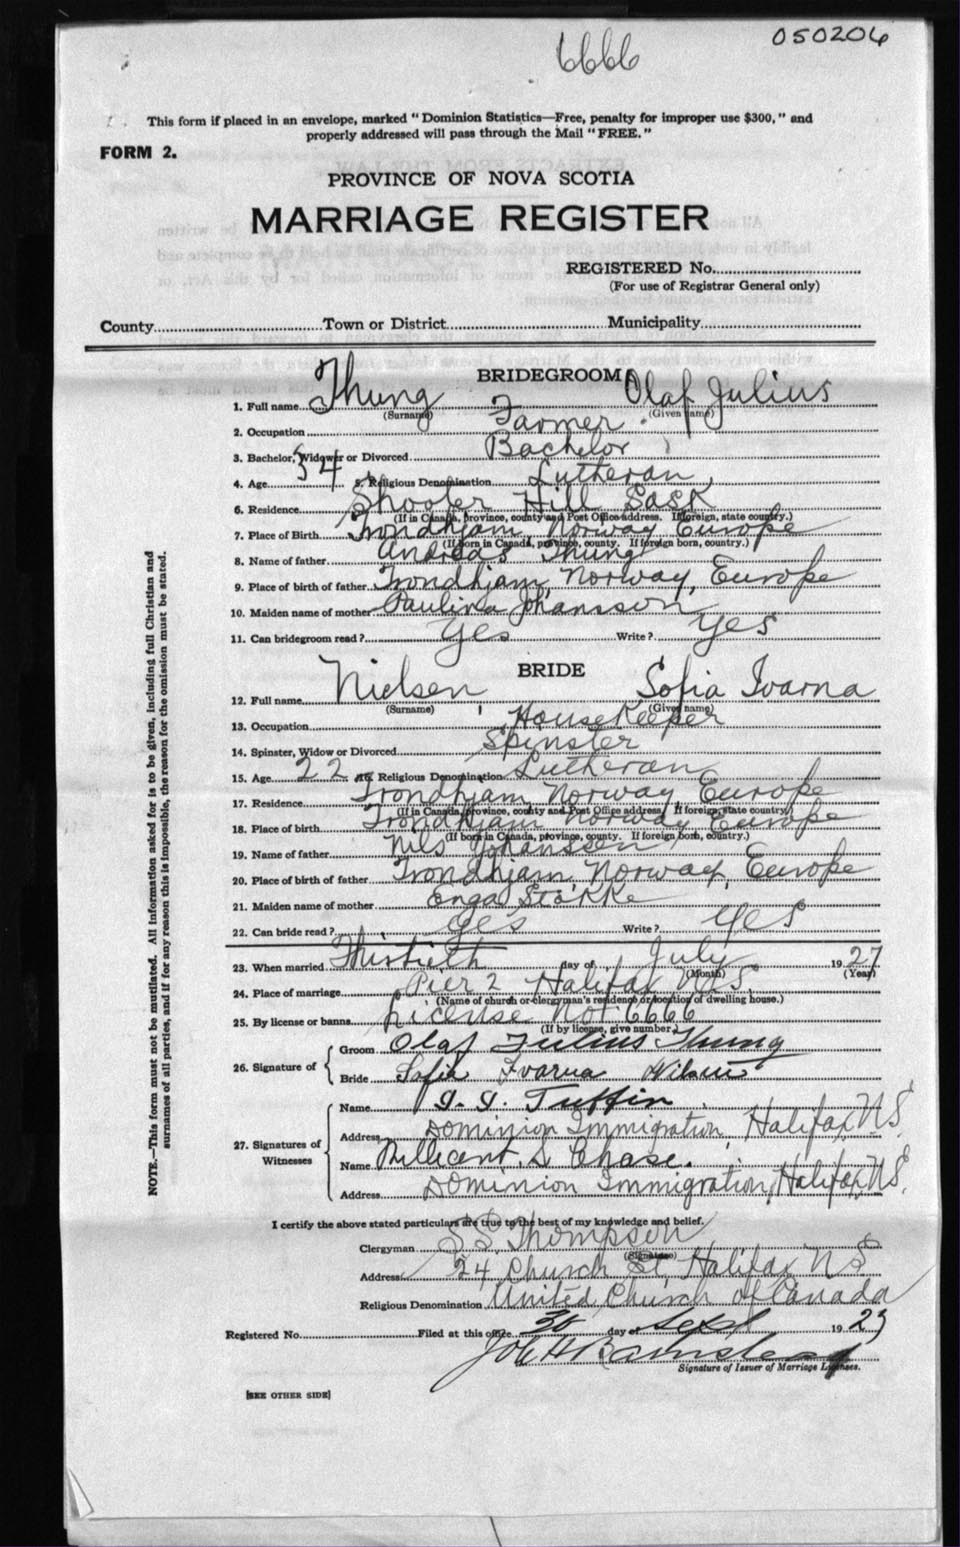 6666
050206
This form if placed in an envelope, marked "Dominion Statistics—Free, penalty for improper use $300," and
properly addressed will pass through the Mail "FREE."
FORM 2.
PROVINCE OF NOVA SCOTIA
MARRIAGE REGISTER
REGISTERED No.
(For use of Registrar General only)
County Town or District Municipality
BRIDEGROOM
1. Full name Thung Olaf Julius
(Surname) (Given name)
2. Occupation Farmer
3. Bachelor, Widower or Divorced Bachelor
4. Age 34 5. Religious Denomination Lutheran
6. Residence Shooter Hill Sask
(If in Canada, province, county and Post Office address. If foreign, state country.)
7. Place of Birth Trondhjam, Norway Europe
(If born in Canada, province, county. If foreign born, country.)
8. Name of father Andreas Thung
9. Place of birth of father Trondhjam, Norway, Europe
10. Maiden name of mother Paulina Johansson
11. Can bridegroom read? Yes Write? Yes
BRIDE
12. Full name Nielsen Sofia Ivarna
(Surname) (Given name)
13. Occupation HouseKeeper
14. Spinster, Widow or Divorced Spinster
15. Age 22 16. Religious Denomination Lutheran
17. Residence Trondhjam Norway Europe
(If in Canada, province, county and Post Office address. If foreign, state country.)
18. Place of birth Trondhjam Norway Europe
(If born in Canada, province, county. If foreign born, country.)
19. Name of father Nils Johanssen
20. Place of birth of father Trondhjam, Norway, Europe
21. Maiden name of mother Enga Stokke
22. Can bride read? Yes Write? Yes
23. When married Thirtieth day of July 1927
(Month) (Year)
24. Place of marriage Pier 2 Halifax N.S.
(Name of church or clergyman's residence or location of dwelling house.)
25. By license or banns License No. 6666
(If by license, give number)
26. Signature of
Groom Olaf Julius Thung
Bride Sofia Ivarna
27. Signatures of Witnesses
Name Tuffin
Address Dominion Immigration, Halifax, NS.
Name Millicent S Chase.
Address Dominion Immigration, Halifax, NS.
I certify the above stated particulars are true to the best of my knowledge and belief.
Clergyman S S Thompson
(Signature)
Address 24 Church St, Halifax NS
Religious Denomination United Church of Canada
Registered No. Filed at this office 30 day of Sept 192
Signature of Issuer of Marriage Licenses.
[SEE OTHER SIDE]
NOTE.—This form must not be mutilated. All information asked for is to be given, including full Christian and
surnames of all parties, and if for any reason this is impossible, the reason for the omission must be stated.